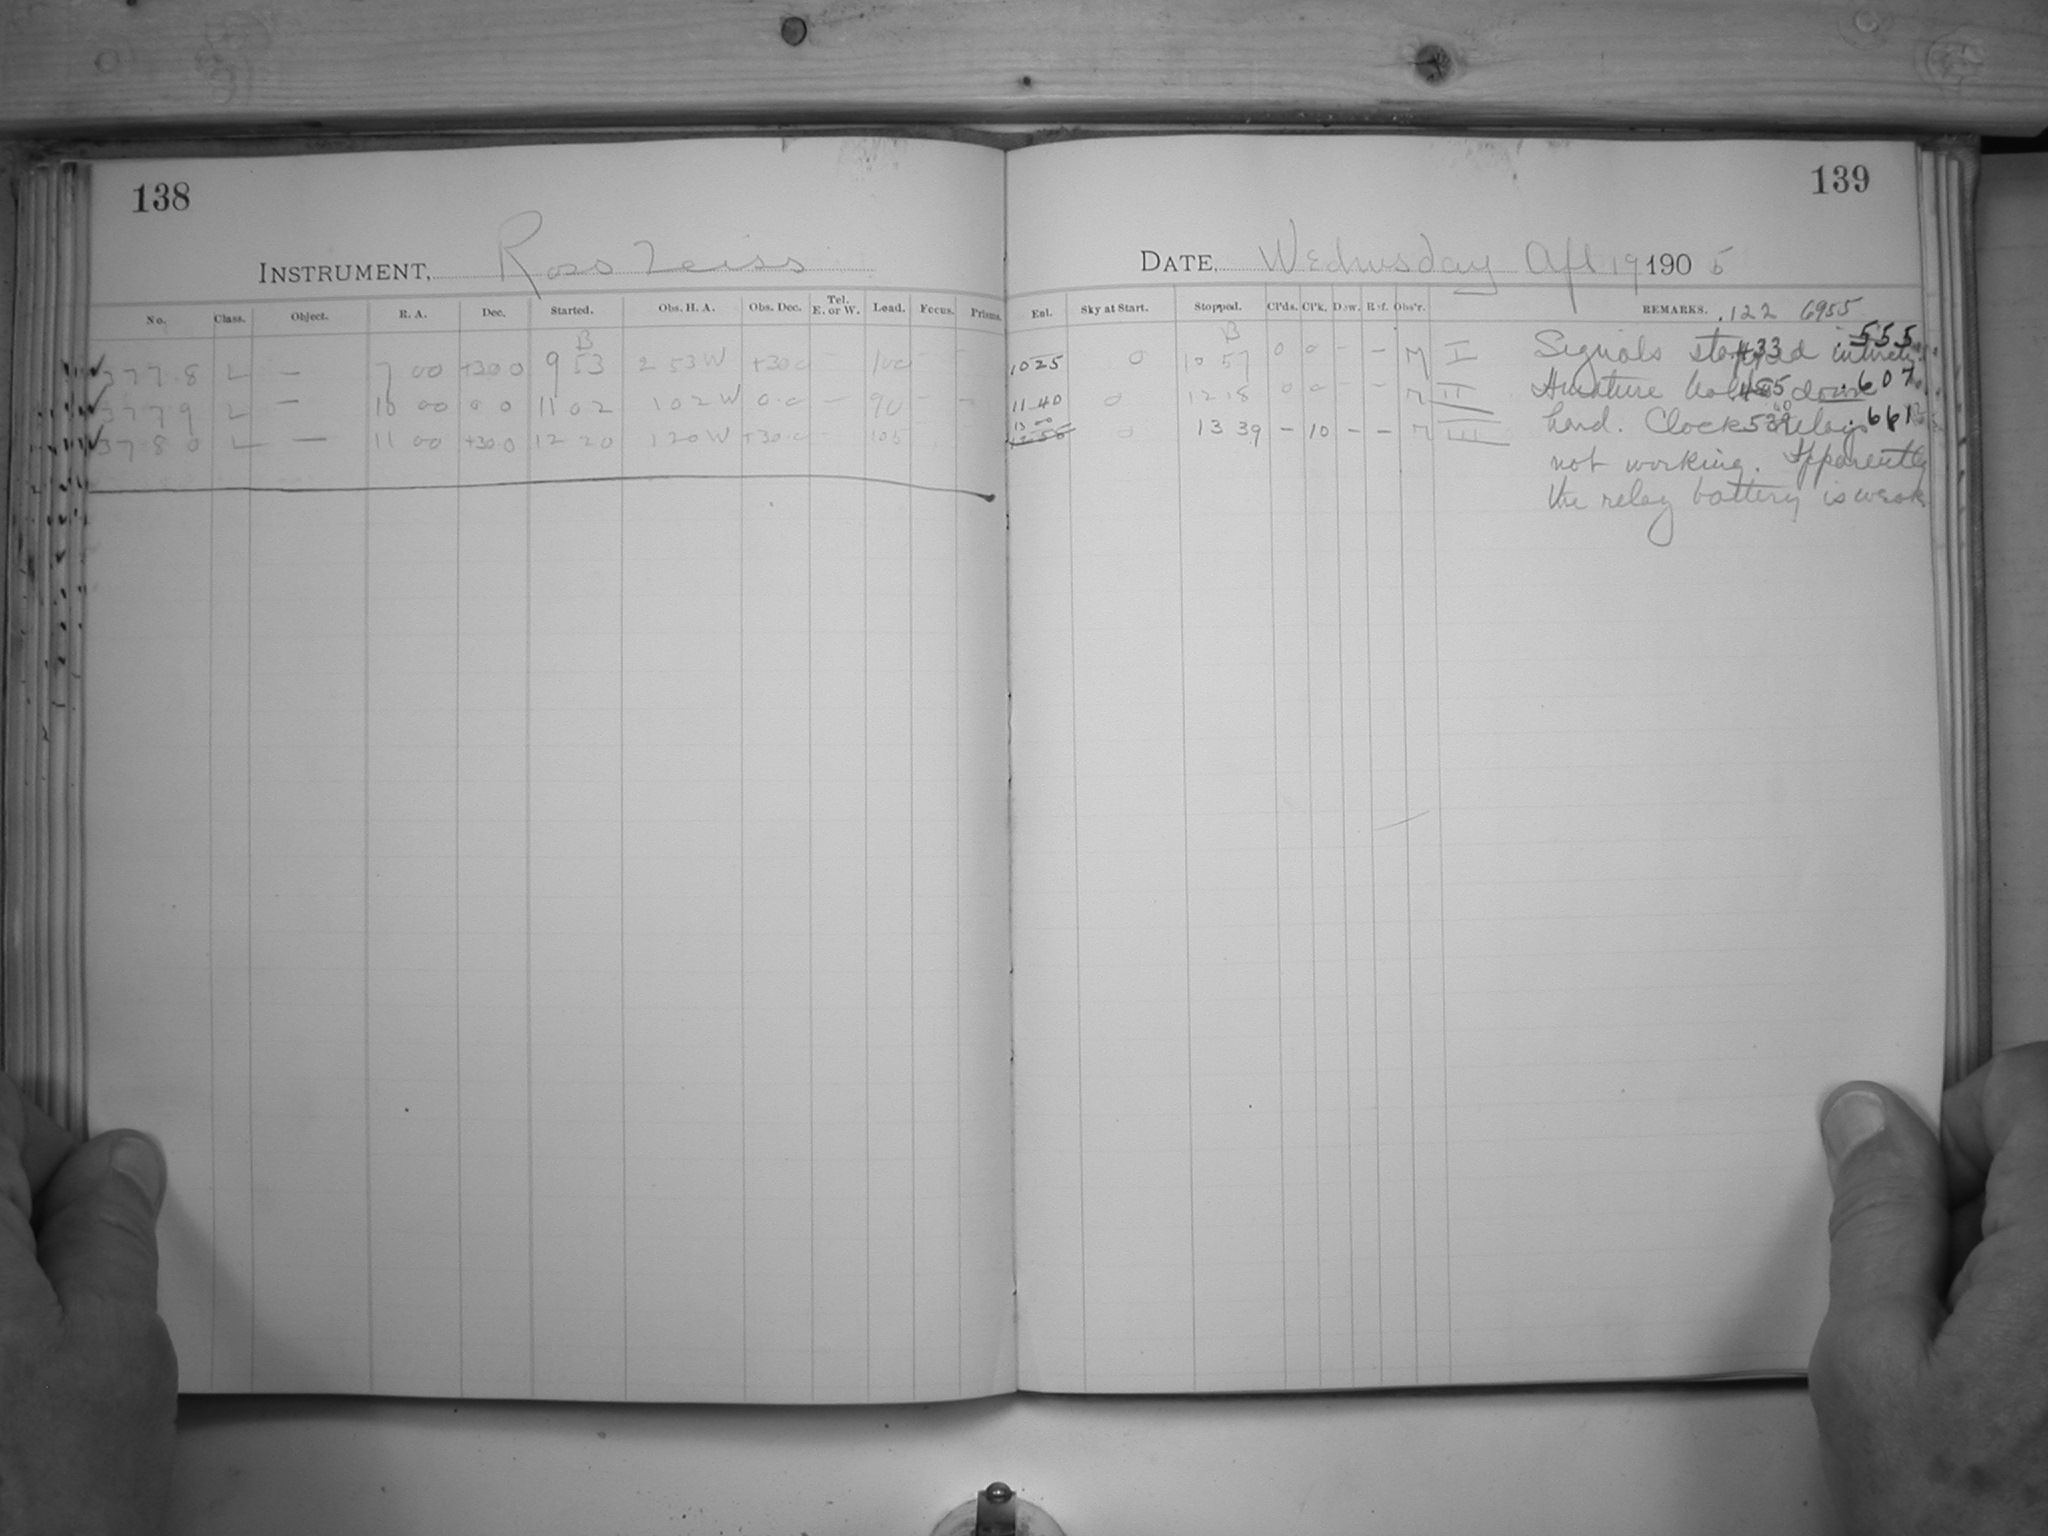 138
139
INSTRUMENT, Ross Zeiss
DATE, Wednesday Apl 19 190 5
No. Class. Object. R. A. Dec. Started. Obs. H. A. Obs. Dec. Tel. E. or W. Lead. Focus. Prisms.
Enl. Sky at Start. Stopped. Cl'ds. Cl'k. Dew. Ref. Obs'r. REMARKS. .122 6955
B
B
3778 L — 7 00 +30 0 9 53 2 53 W +30 0 — 100 — —
1025 0 10 57 0 0 — — M I Signals stopped .433 .555
3779 L — 10 00 0 0 11 02 1 02 W 0 0 — 90 — —
1140 0 12 18 0 0 — — M II Armature held down .607
3780 L — 11 00 +30 0 12 20 1 20 W +30 0 — 105
13 00
12 55 0 13 39 — 10 — — M III hard. Clock relay .661
not working. Apparently
the relay battery is weak